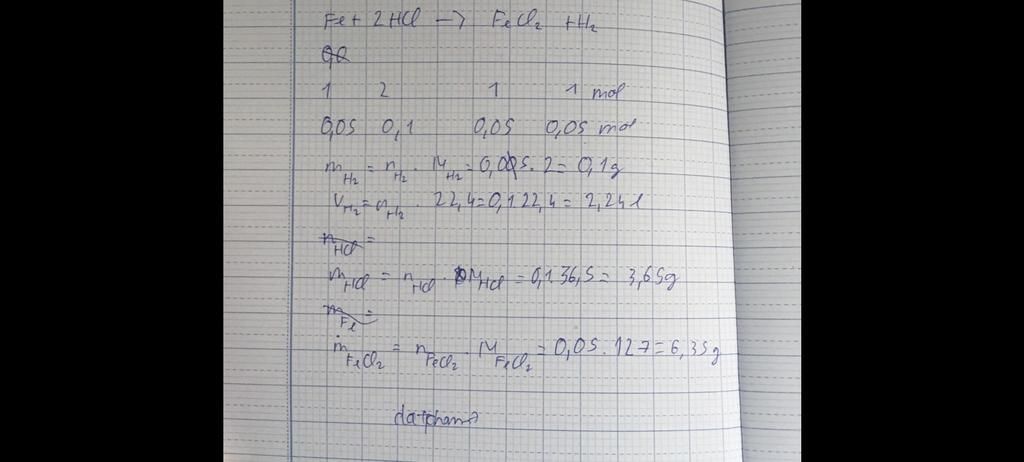 Fe + 2HCl → FeCl₂ + H₂
1 2 1 1 mol
0,05 0,1 0,05 0,05 mol
m_H₂ = n_H₂ . M_H₂ = 0,05 . 2 = 0,1g
V_H₂ = n_H₂ . 22,4 = 0,1 22,4 = 2,24 l
n_HCl =
m_HCl = n_HCl . M_HCl = 0,1.36,5 = 3,65g
m_Fe =
m_FeCl₂ = n_FeCl₂ . M_FeCl₂ = 0,05 . 127 = 6,35g